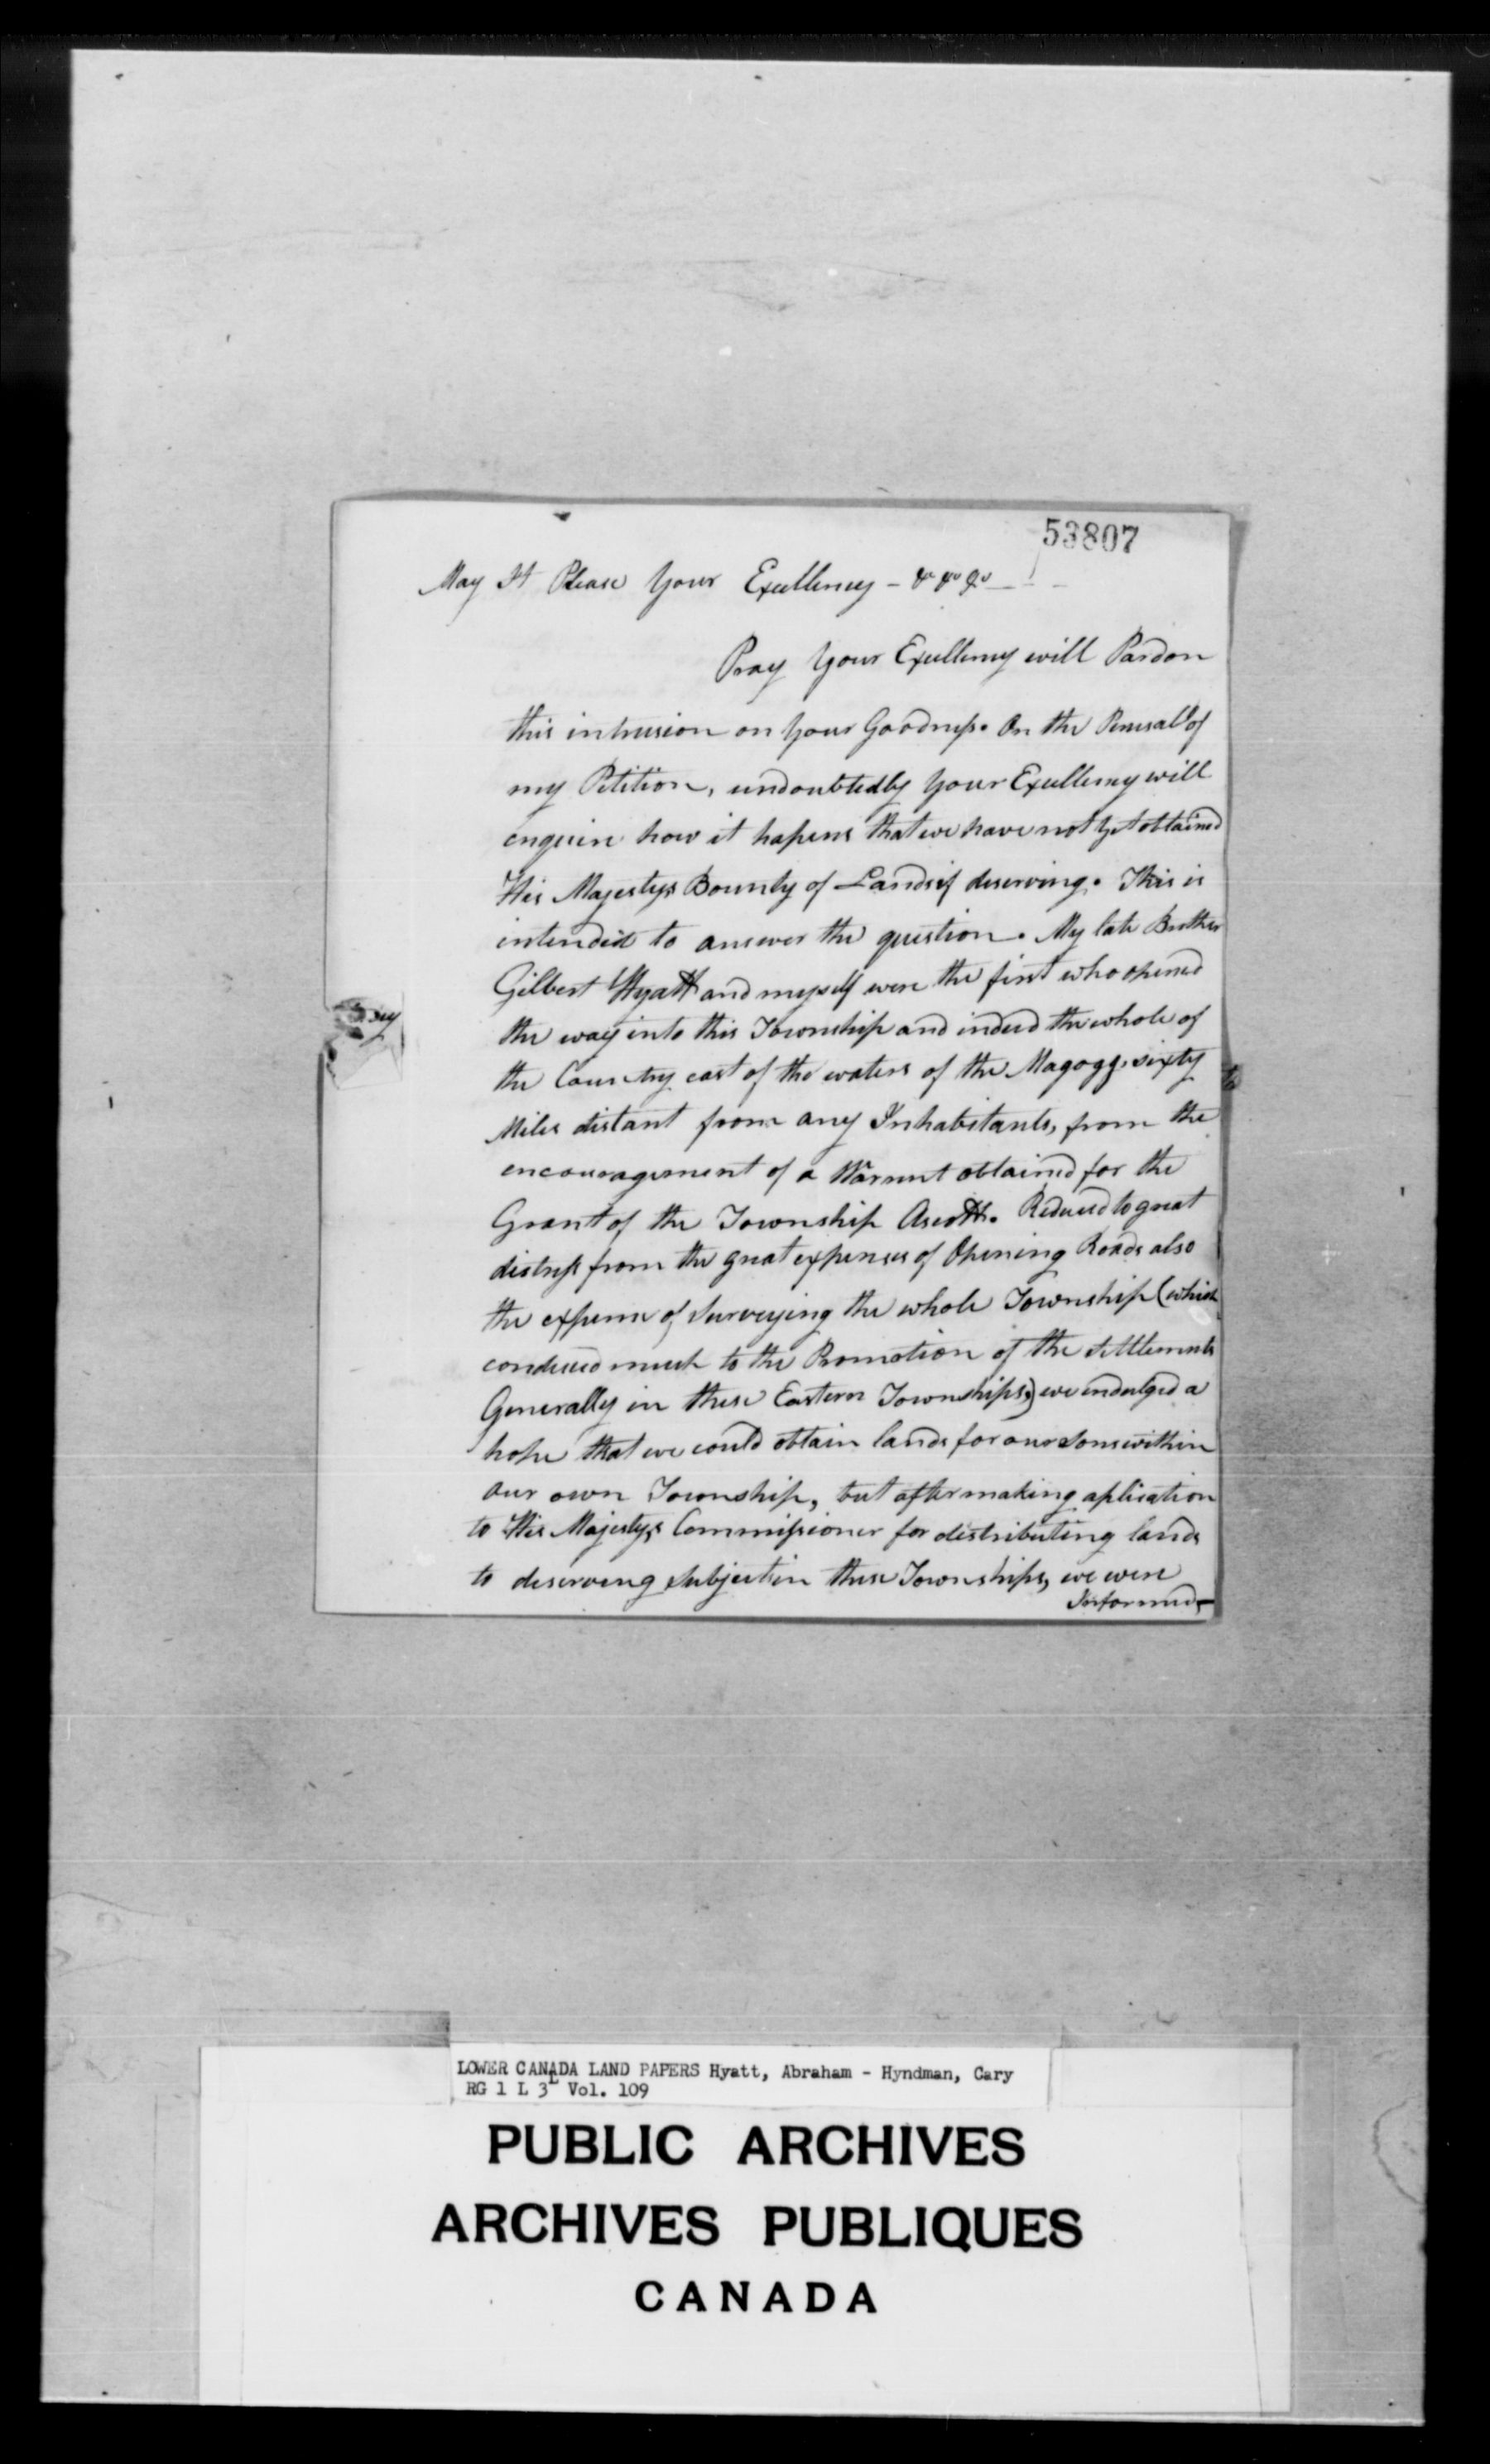 53807
May It Please Your Exellency - &c &c &c
Pray Your Exellency will Pardon
this intrusion on Your Goodness. On the Perusall of
my Petition, undoubtedly Your Exellency will
enquire how it hapens that we have not Yet obtained
His Majestys Bounty of Lands if deserving. This is
intended to answer the question. My late Brother
Gilbert Hyatt and myself were the first who opened
the way into this Township and indeed the whole of
the Country east of the waters of the Magogg, sixty
Miles distant from any Inhabitants, from the
encouragement of a Warrent obtained for the
Grant of the Township Ascott. Reduced to great
distress from the great expenses of Opening Roads also
the expense of Surveying the whole Township (which
conduced much to the Promotion of the Settlements
Generally in these Eastern Townships,) we endulged a
hope that we could obtain lands for our Sons within
our own Township, but after making aplication
to His Majestys Commissioner for distributing lands
to deserving Subjects in these Townships, we were
Informed,
LOWER CANADA LAND PAPERS Hyatt, Abraham - Hyndman, Cary
RG 1 L 3L Vol. 109
PUBLIC ARCHIVES
ARCHIVES PUBLIQUES
CANADA